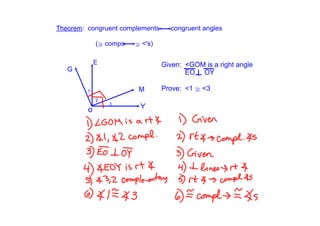 Theorem: congruent complements⟶congruent angles
(≅ comps⟶≅ <'s)
Given: <GOM is a right angle
EO⊥ OY
Prove: <1 ≅ <3
E
G
M
Y
O
1
2
3
1) ∡GOM is a rt ∡ 1) Given
2) ∡1, ∡2 compl. 2) rt ∡→compl ∡s
3) EO ⊥ OY 3) Given
4) ∡EOY is rt ∡ 4) ⊥ lines→rt ∡
5) ∡3,2 complementary 5) rt ∡→compl ∡s
6) ∡1 ≅ ∡3 6) ≅ compl → ≅ ∡s